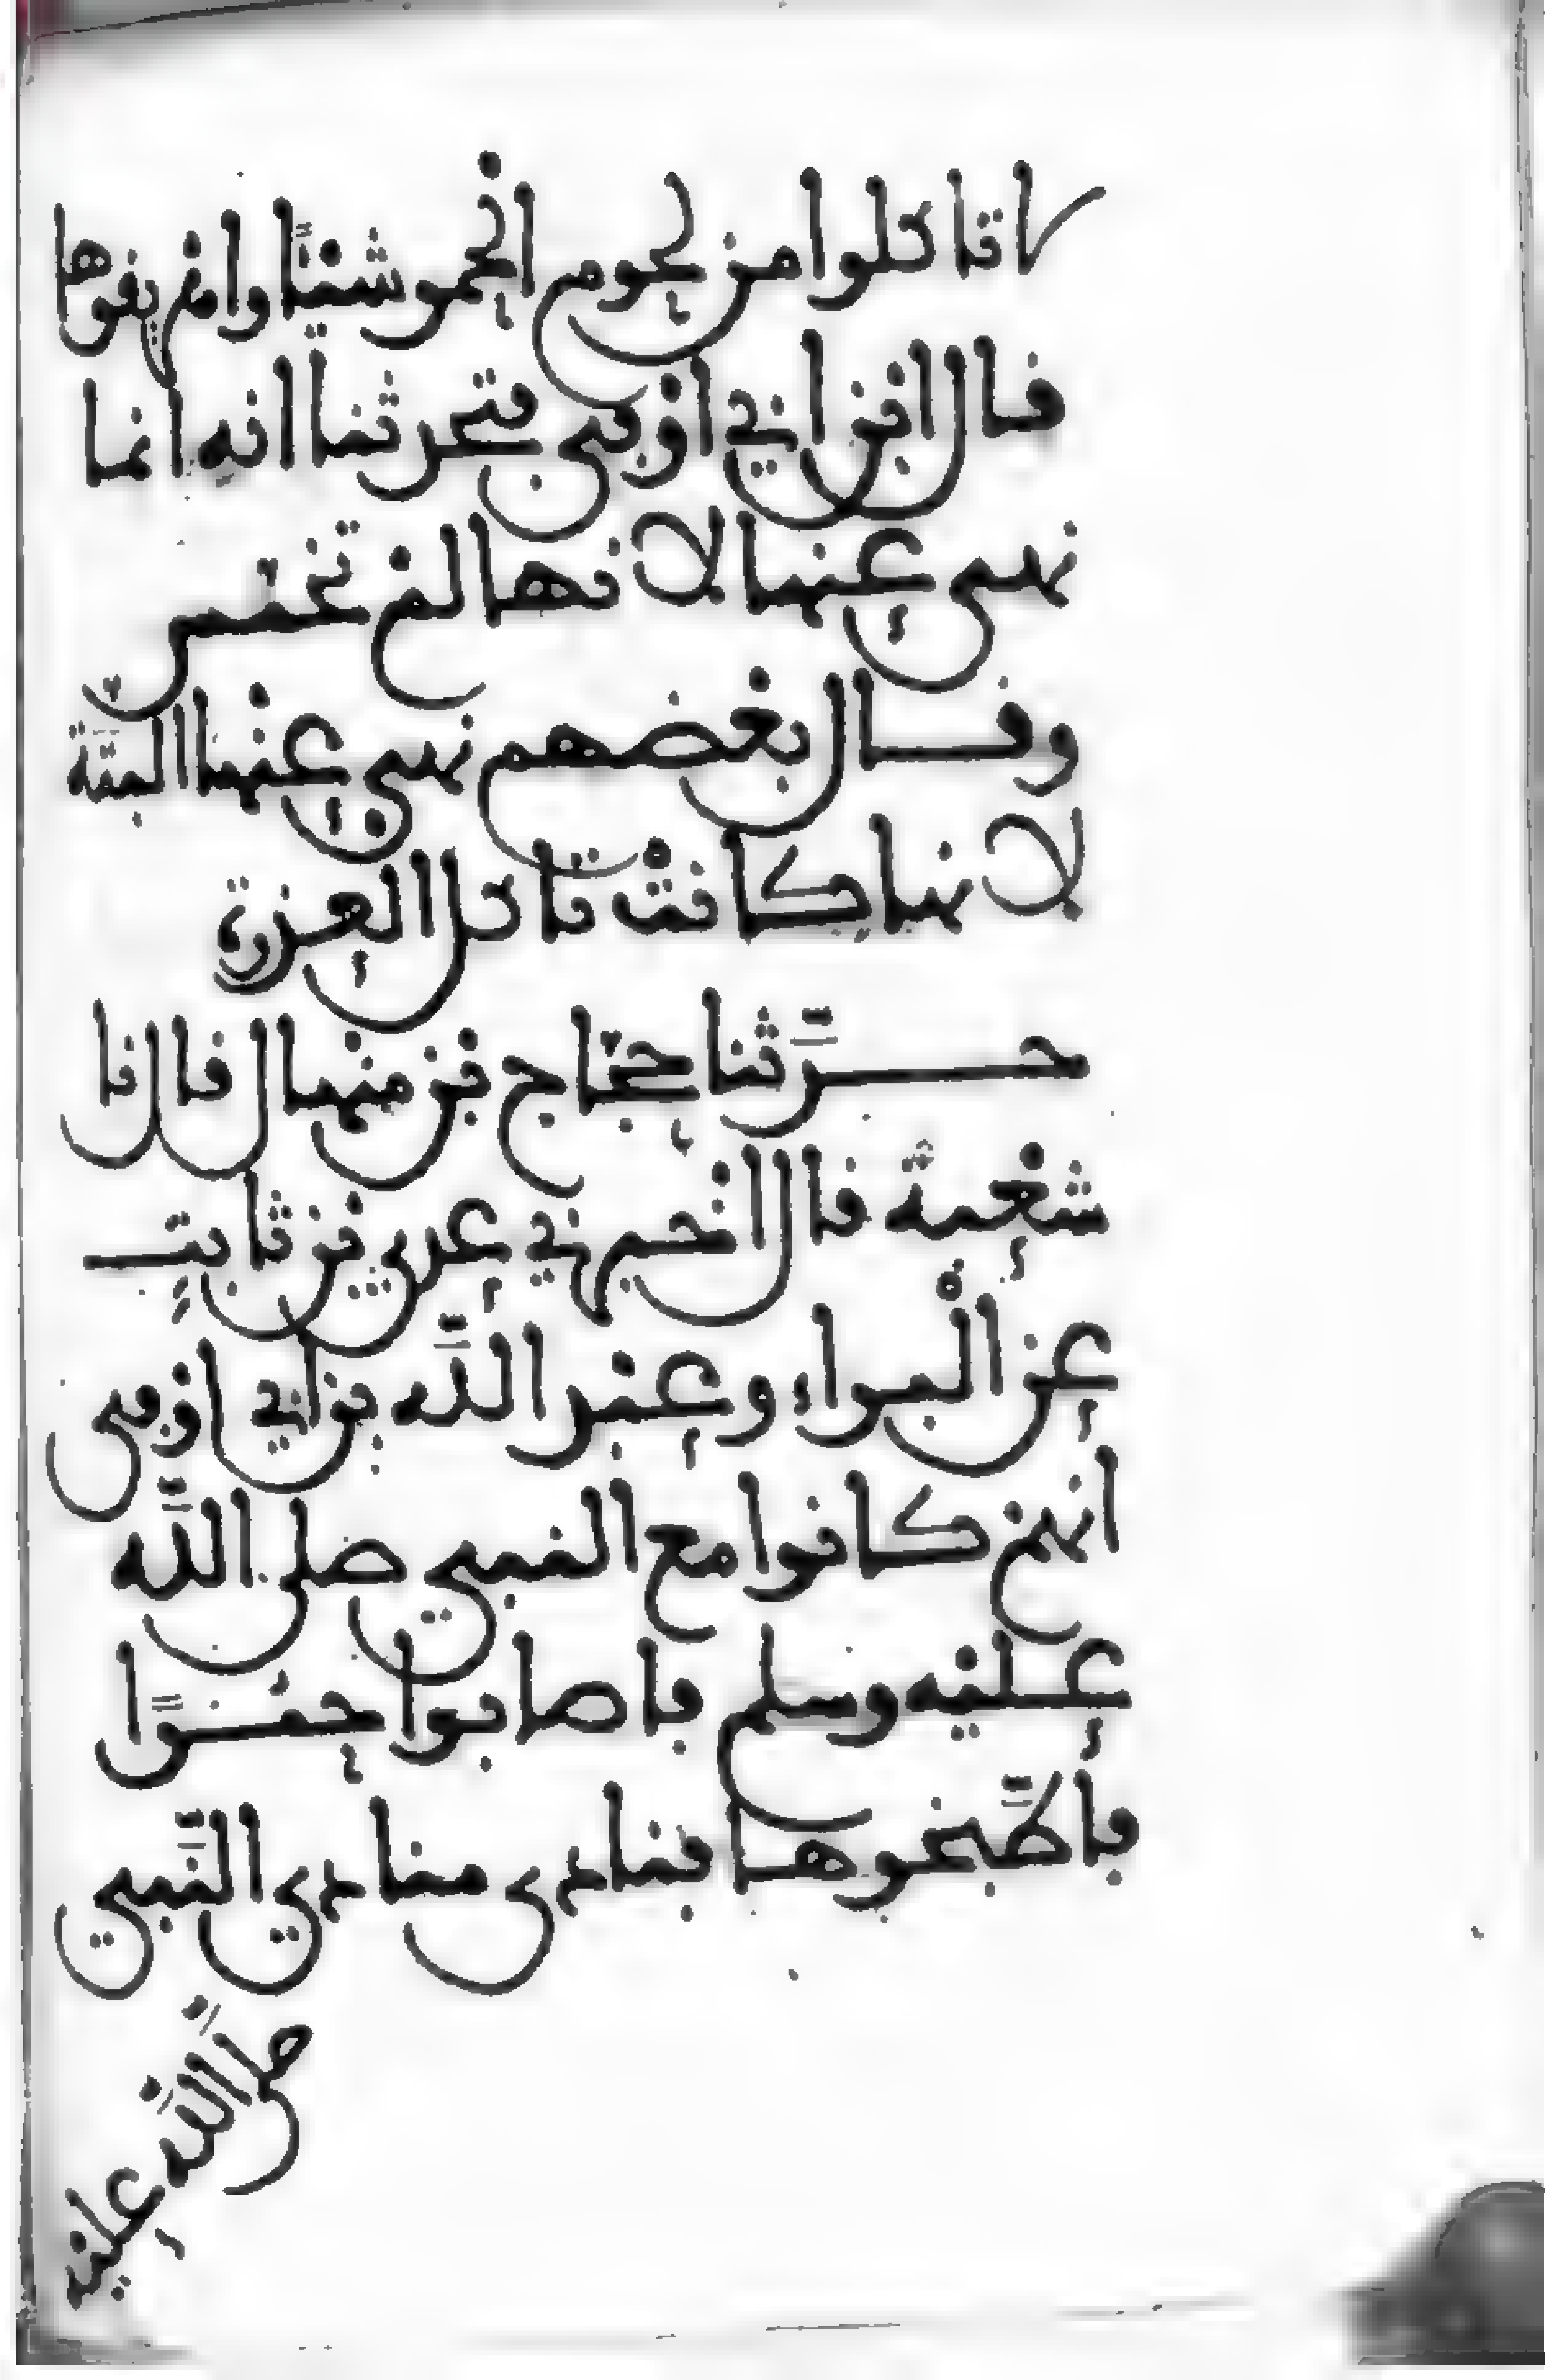 لا تاكلوا من لحوم الحمر شيئًا واهريقوها
قال ابن ابي اوفى فتحدثنا انه انما
نهى عنها لانها لم تخمس
وقال بعضهم نهى عنها البتة
لانها كانت تاكل العذرة
حدَّثنا حجّاج بن منهال قال نا
شعبة قال اخبرني عدي بن ثابت
عن الْبراء وعبد اللَّه بن ابي اوفى
انهم كانوا مع النبي صلى اللَّه
عليه وسلم فاصابوا حمرًا
فاطَّبخوها فنادى منادي النَّبي
صلى اللَّه عليه